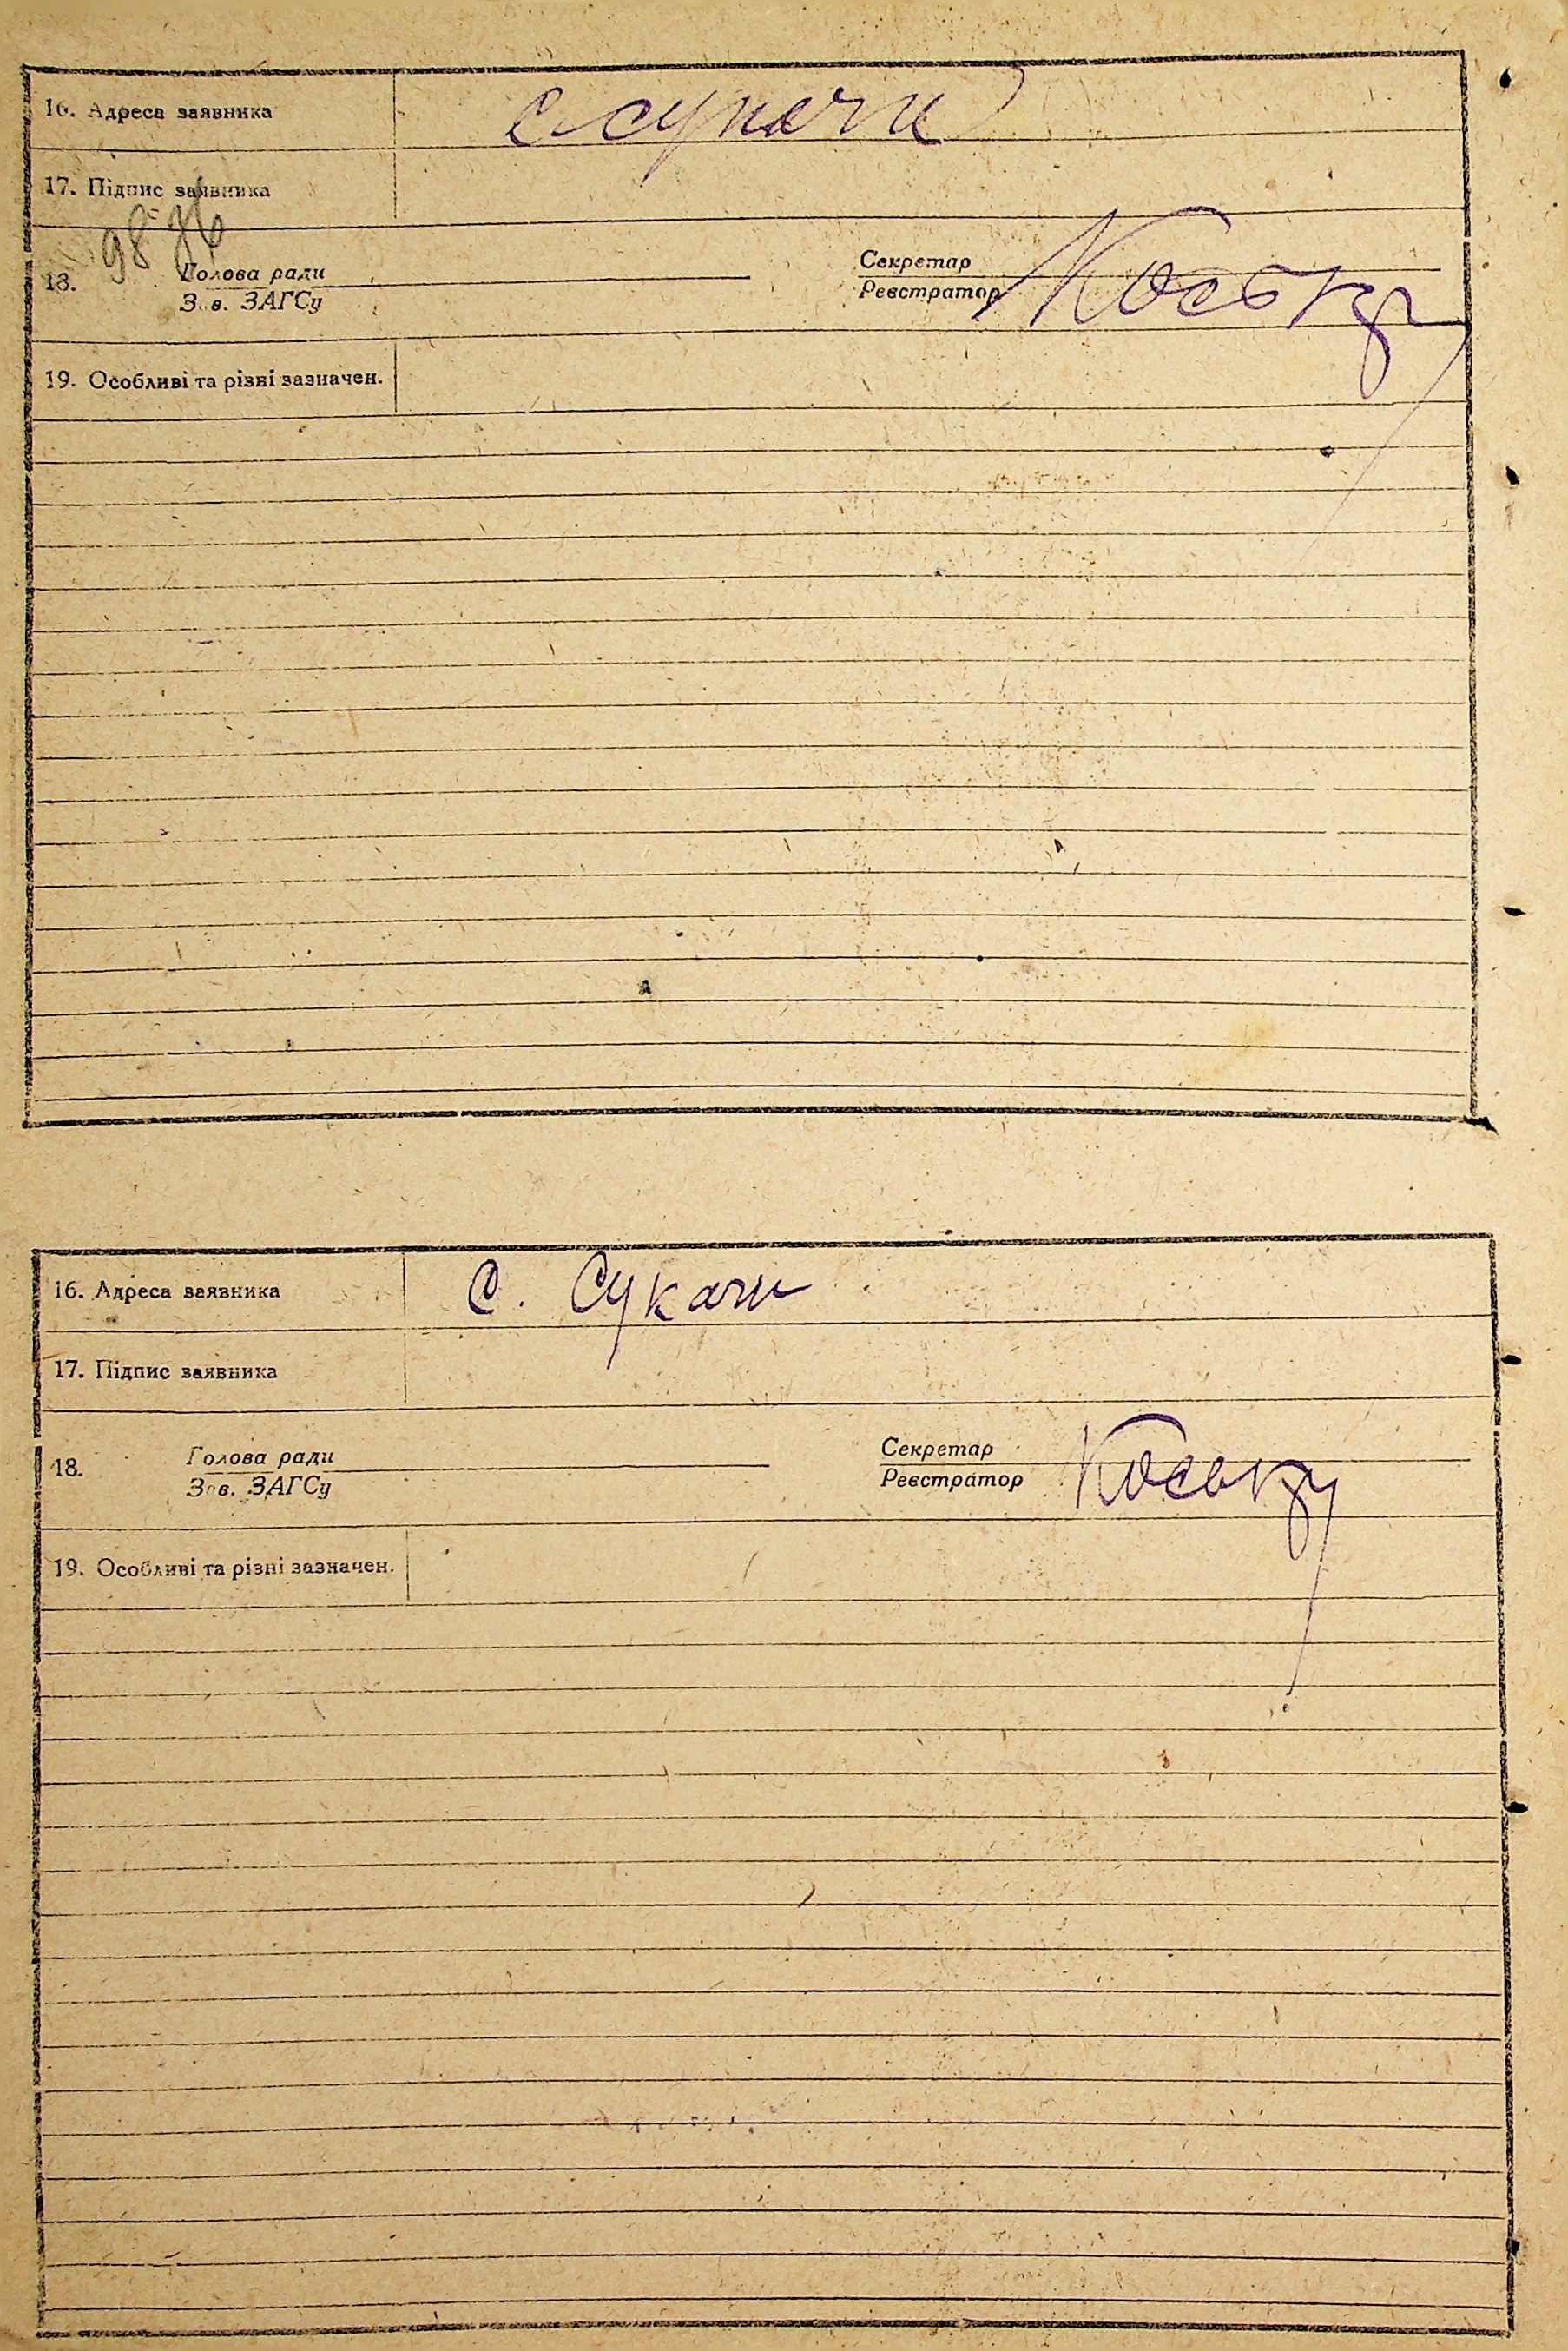 16. Адреса заявника с сукачи
17. Підпис заявника
98
18. Голова ради Секретар
Зав. ЗАГСу Реєстратор
19. Особливі та різні зазначен.
16. Адреса заявника С. Сукачи
17. Підпис заявника
18. Голова ради Секретар
Зав. ЗАГСу Реєстратор
19. Особливі та різні зазначен.